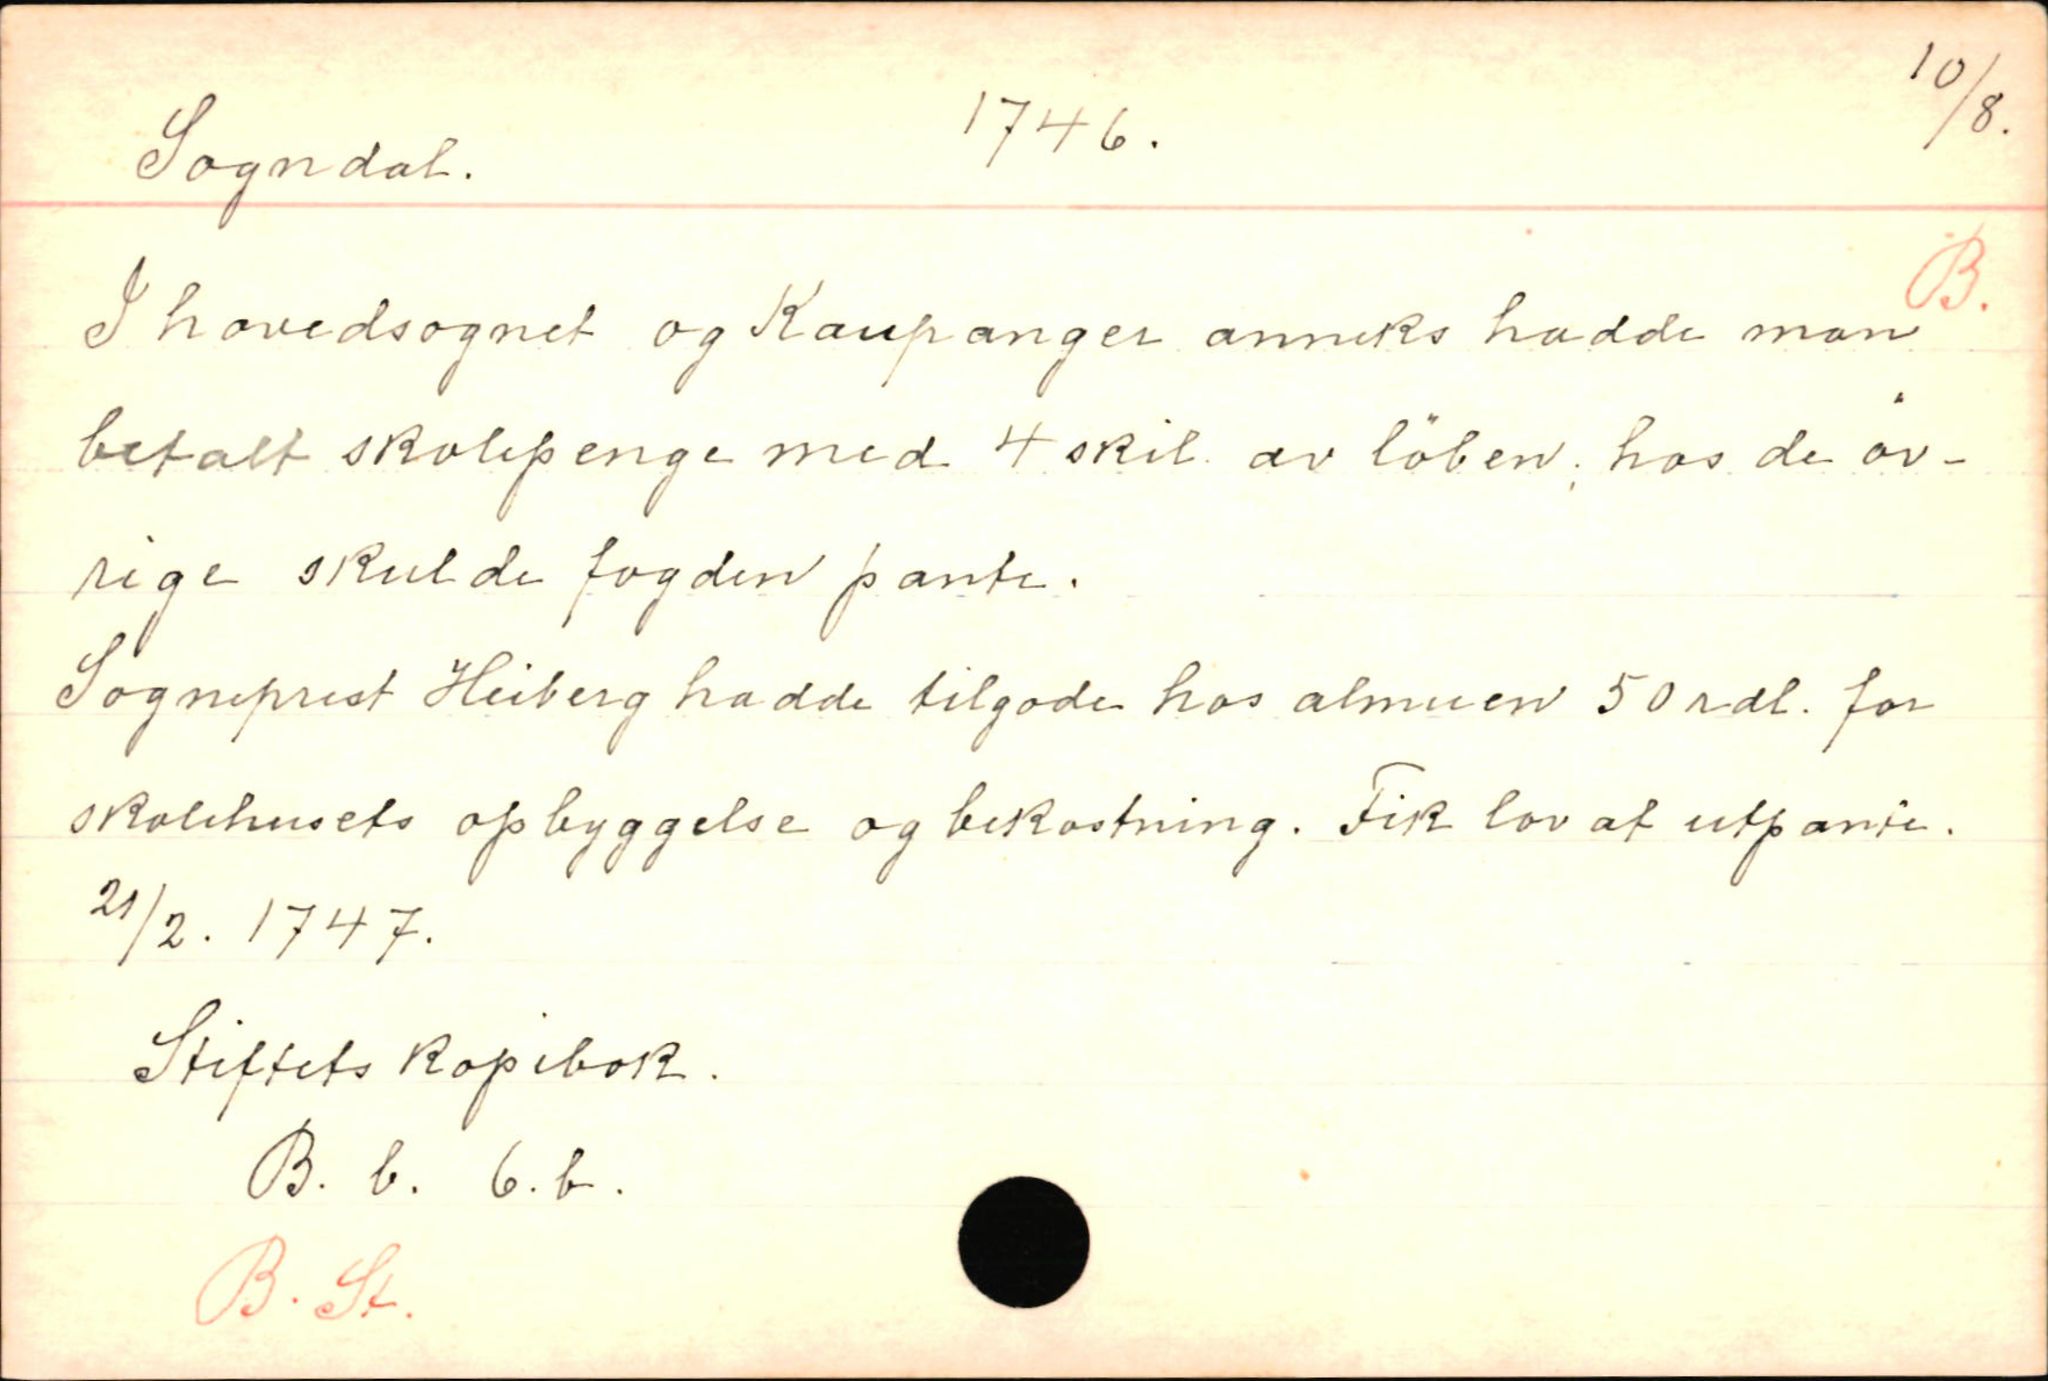 Sogndal. 1746. 10/8.
B.
I hovedsognet og Kaupanger anneks hadde man
betalt skolepenge med 4 skil. av löben; hos de öv-
rige skulde fogden pante.
Sogneprest Heiberg hadde tilgode hos almuen 50 rdl. for
skolehusets opbyggelse og bekostning. Fik lov at utpante.
21/2. 1747.
Stiftets kopibok.
B. b. 6. b.
B. St.